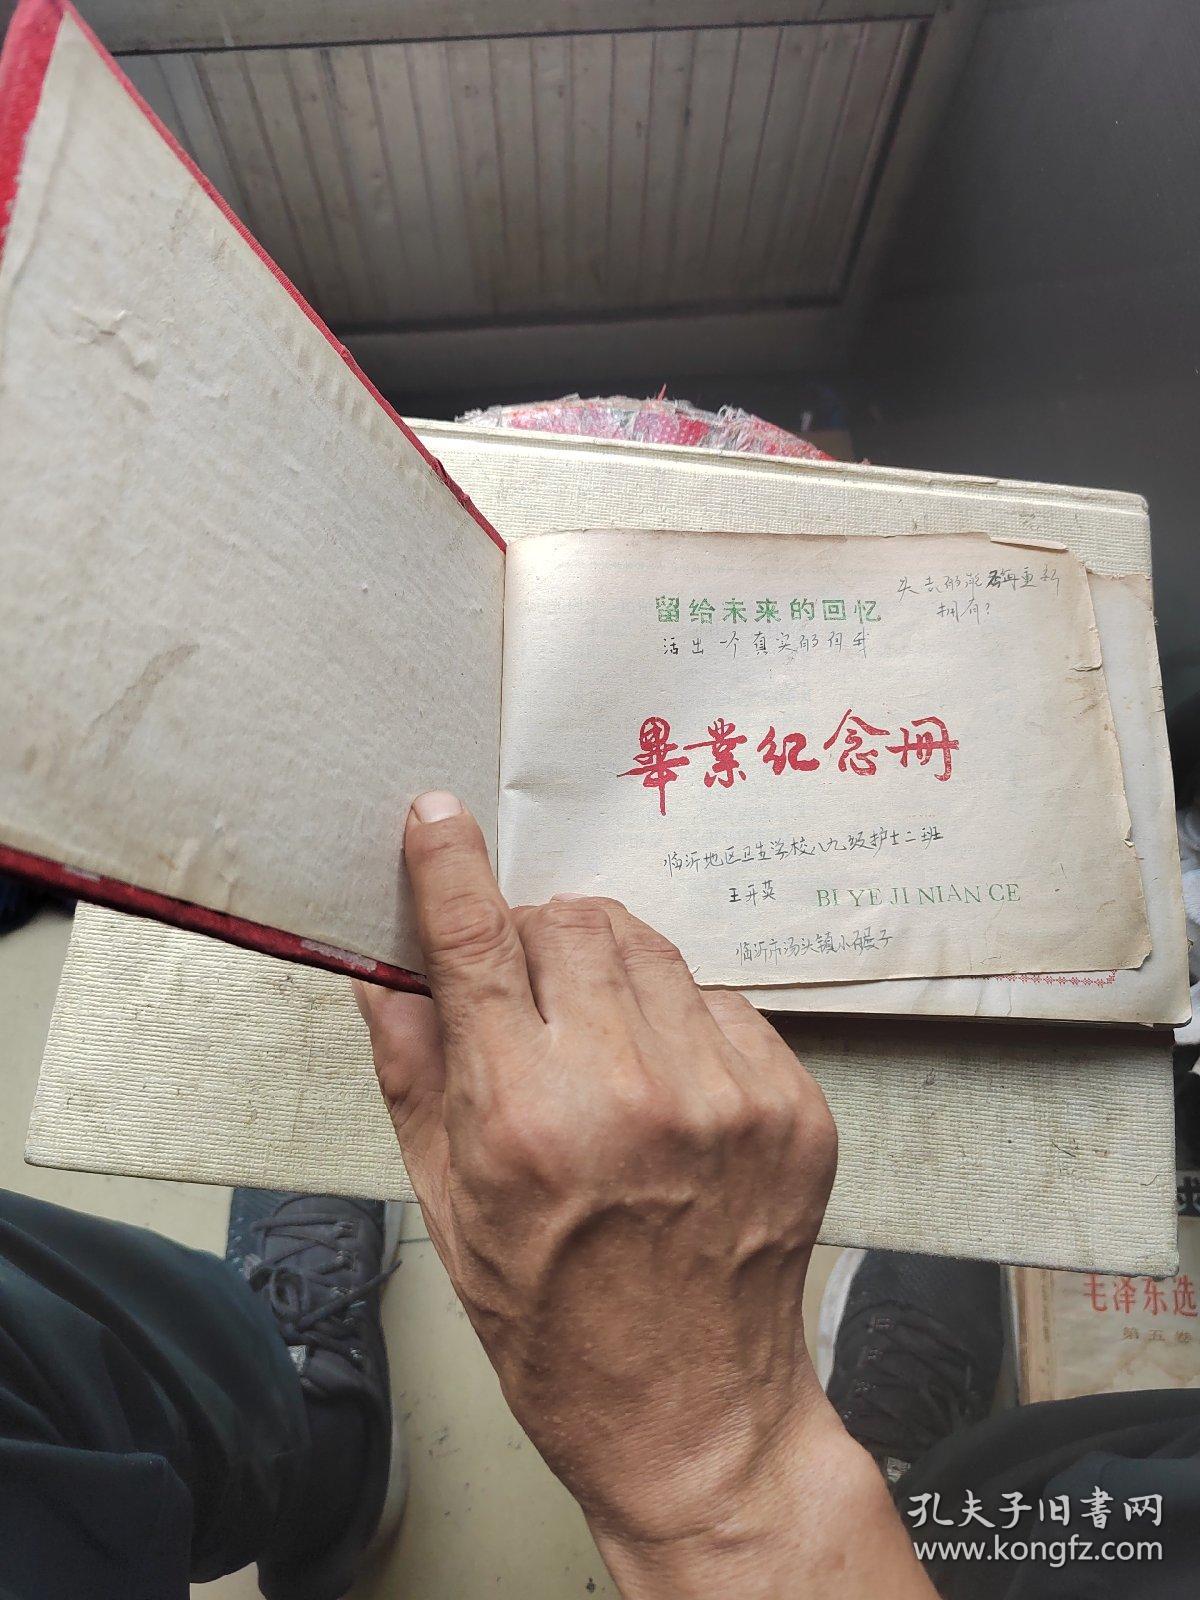 失去的能否再重新
拥有？
留给未来的回忆
活出一个真实的自我
畢業纪念冊
临沂地区卫生学校八九级护士二班
王开英
BI YE JI NIAN CE
临沂市汤头镇小
毛泽东选
第五卷
孔夫子旧書网
www.kongfz.com